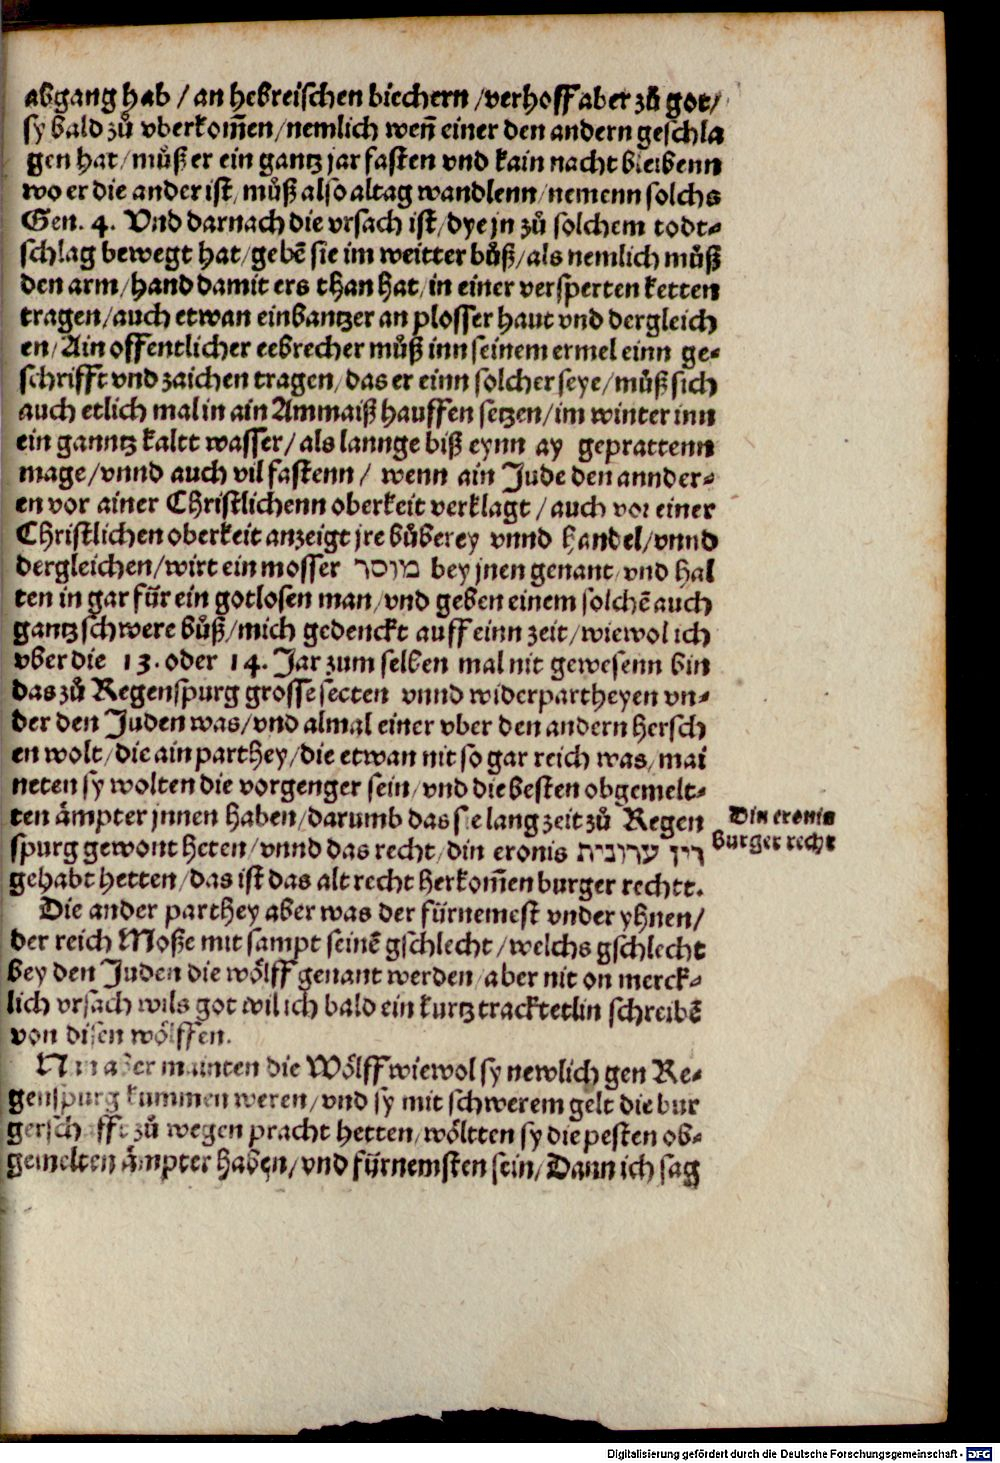 abgang hab / an hebreischen biechern / verhoff aber zů got /
sy bald zů vberkom̃en / nemlich weñ einer den andern geschla
gen hat / můß er ein gantz jar fasten vnd kain nacht bleibenn
wo er die ander ist / můß also altag wandlenn / nemenn solchs
Gen. 4. Vnd darnach die vrsach ist / dye jn zů solchem todt⸗
schlag bewegt hat / gebẽ sie im weitter bůß / als nemlich můß
den arm / hand damit ers than hat / in einer versperten ketten
tragen / auch etwan ein bantzer an plosser haut vnd dergleich
en / Ain offentlicher eebrecher můß inn seinem ermel einn ge⸗
schrifft vnd zaichen tragen / das er einn solcher seye / můß sich
auch etlich mal in ain Ammaiß hauffen setzen / im winter inn
ein ganntz kaltt wasser / als lannge biß eynn ay geprattenn
mage / vnnd auch vil fastenn / wenn ain Jude den annder⸗
en vor ainer Christlichenn oberkeit verklagt / auch vor einer
Christlichen oberkeit anzeigt jre bůberey vnnd handel / vnnd
dergleichen / wirt ein mosser מוסר bey jnen genant / vnd hal
ten in gar für ein gotlosen man / vnd geben einem solchẽ auch
gantz schwere bůß / mich gedenckt auff einn zeit / wiewol ich
vber die 13. oder 14. Jar zum selben mal nit gewesenn bin
das zů Regenspurg grosse secten vnnd widerpartheyen vn⸗
der den Juden was / vnd almal einer vber den andern hersch
en wolt / die ain parthey / die etwan nit so gar reich was / mai
neten sy wolten die vorgenger sein / vnd die besten obgemelt⸗
ten ämpter jnnen haben / darumb das sie lang zeit zů Regen
spurg gewont heten / vnnd das recht / din eronis דין ערובית
gehabt hetten / das ist das alt recht herkom̃en burger rechtt.
Din eronis
burger recht
Die ander parthey aber was der fürnemest vnder yhnen /
der reich Moße mit sampt seinẽ gschlecht / welchs gschlecht
bey den Juden die wölff genant werden / aber nit on merck⸗
lich vrsach wils got wil ich bald ein kurtz tracktetlin schreibẽ
von disen wölffen.
Nun aber mainten die Wölff wiewol sy newlich gen Re⸗
genspurg kummen weren / vnd sy mit schwerem gelt die bur
gerschafft zů wegen pracht hetten / wöltten sy die pesten ob⸗
gemelten ämpter haben / vnd fürnemsten sein / Dann ich sag
Digitalisierung gefördert durch die Deutsche Forschungsgemeinschaft - DFG